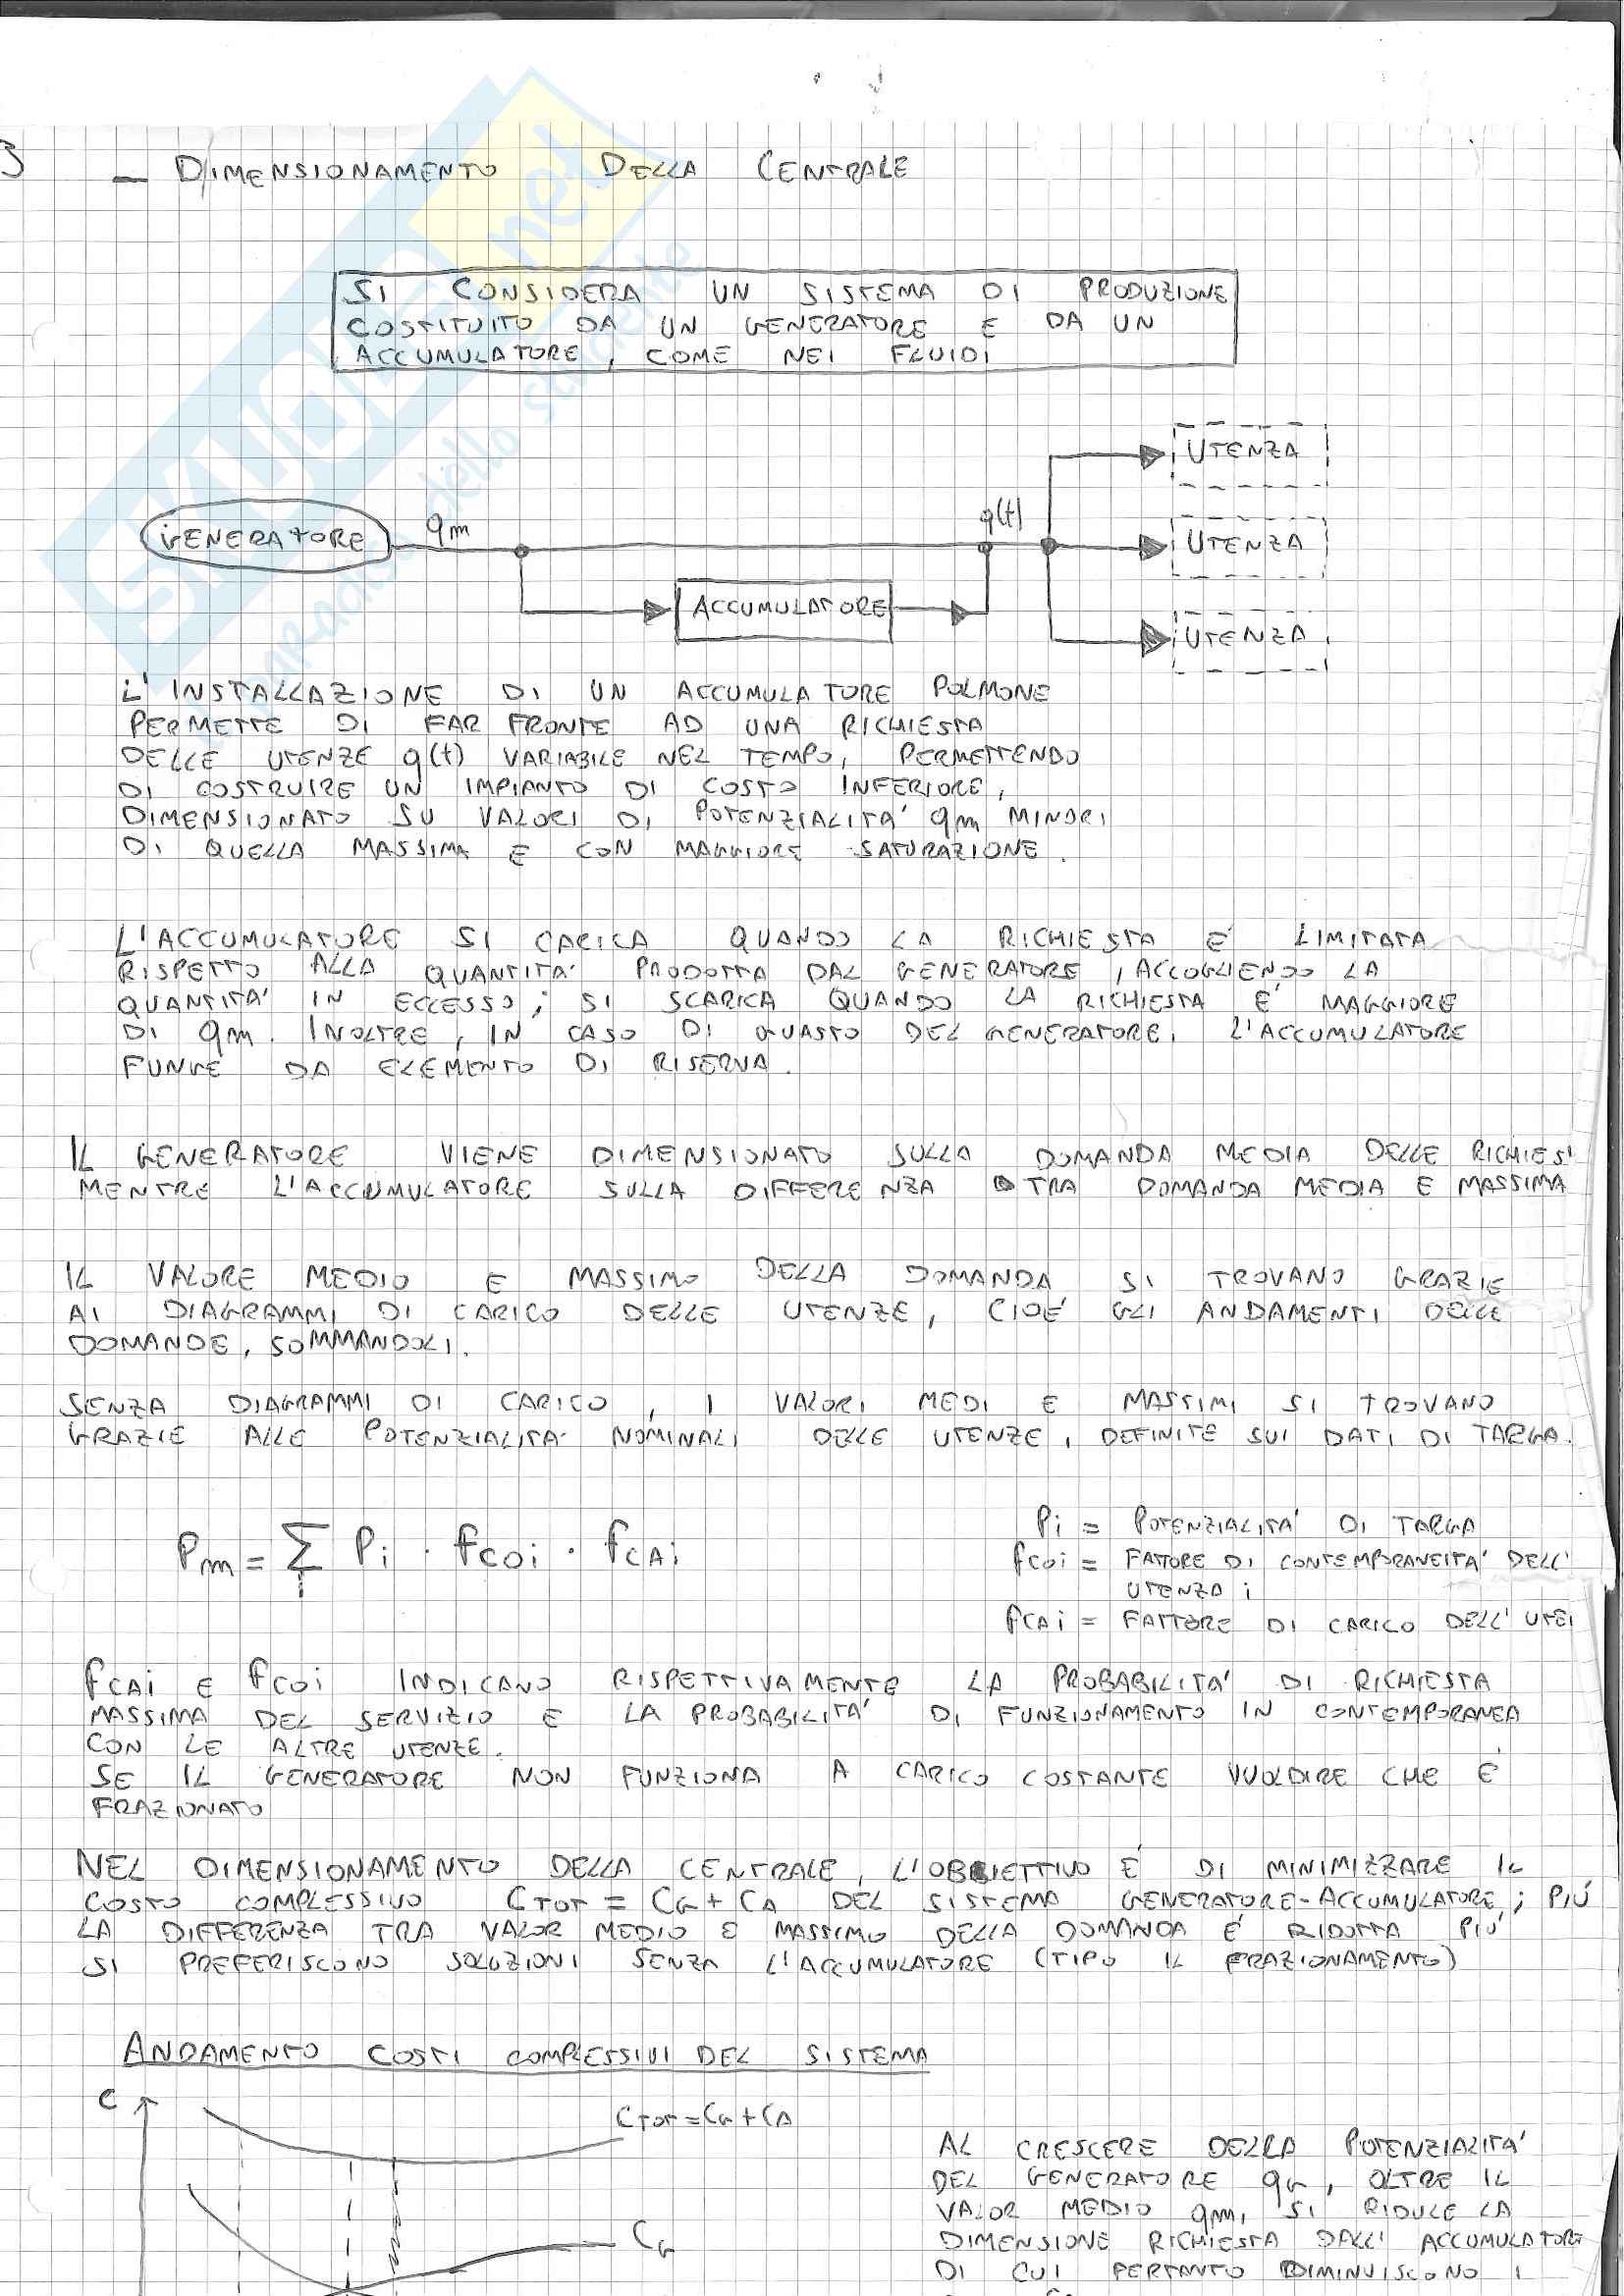 3
— DIMENSIONAMENTO DELLA CENTRALE
SI CONSIDERA UN SISTEMA DI PRODUZIONE
COSTITUITO DA UN GENERATORE E DA UN
ACCUMULATORE, COME NEI FLUIDI
UTENZA
GENERATORE qm q(t) UTENZA
ACCUMULATORE
UTENZA
L'INSTALLAZIONE DI UN ACCUMULATORE POLMONE
PERMETTE DI FAR FRONTE AD UNA RICHIESTA
DELLE UTENZE q(t) VARIABILE NEL TEMPO, PERMETTENDO
DI COSTRUIRE UN IMPIANTO DI COSTO INFERIORE,
DIMENSIONATO SU VALORI DI POTENZIALITA' qm MINORI
DI QUELLA MASSIMA E CON MAGGIORE SATURAZIONE.
L'ACCUMULATORE SI CARICA QUANDO LA RICHIESTA E' LIMITATA
RISPETTO ALLA QUANTITA' PRODOTTA DAL GENERATORE, ACCOGLIENDO LA
QUANTITA' IN ECCESSO; SI SCARICA QUANDO LA RICHIESTA E' MAGGIORE
DI qm. INOLTRE, IN CASO DI GUASTO DEL GENERATORE, L'ACCUMULATORE
FUNGE DA ELEMENTO DI RISERVA.
IL GENERATORE VIENE DIMENSIONATO SULLA DOMANDA MEDIA DELLE RICHIES
MENTRE L'ACCUMULATORE SULLA DIFFERENZA TRA DOMANDA MEDIA E MASSIMA
IL VALORE MEDIO E MASSIMO DELLA DOMANDA SI TROVANO GRAZIE
AI DIAGRAMMI DI CARICO DELLE UTENZE, CIOE' GLI ANDAMENTI DELLE
DOMANDE, SOMMANDOLI.
SENZA DIAGRAMMI DI CARICO, I VALORI MEDI E MASSIMI SI TROVANO
GRAZIE ALLE POTENZIALITA' NOMINALI DELLE UTENZE, DEFINITE SUI DATI DI TARGA.
Pm = Σi Pi · fcoi · fCAi
Pi = POTENZIALITA' DI TARGA
fcoi = FATTORE DI CONTEMPORANEITA' DELL'
UTENZA i
fCAi = FATTORE DI CARICO DELL' UTE
fCAi E fcoi INDICANO RISPETTIVAMENTE LA PROBABILITA' DI RICHIESTA
MASSIMA DEL SERVIZIO E LA PROBABILITA' DI FUNZIONAMENTO IN CONTEMPORANEA
CON LE ALTRE UTENZE.
SE IL GENERATORE NON FUNZIONA A CARICO COSTANTE VUOLDIRE CHE E'
FRAZIONATO
NEL DIMENSIONAMENTO DELLA CENTRALE, L'OBIETTIVO E' DI MINIMIZZARE IL
COSTO COMPLESSIVO CTOT = CG + CA DEL SISTEMA GENERATORE-ACCUMULATORE; PIU'
LA DIFFERENZA TRA VALOR MEDIO E MASSIMO DELLA DOMANDA E' RIDOTTA PIU'
SI PREFERISCONO SOLUZIONI SENZA L'ACCUMULATORE (TIPO IL FRAZIONAMENTO)
ANDAMENTO COSTI COMPLESSIVI DEL SISTEMA
C
CTOT = CG + CA
CG
AL CRESCERE DELLA POTENZIALITA'
DEL GENERATORE qG, OLTRE IL
VALOR MEDIO qm, SI RIDUCE LA
DIMENSIONE RICHIESTA DALL' ACCUMULATORE
DI CUI PERTANTO DIMINUISCONO I
SKUOLA.net
il paradiso dello studente